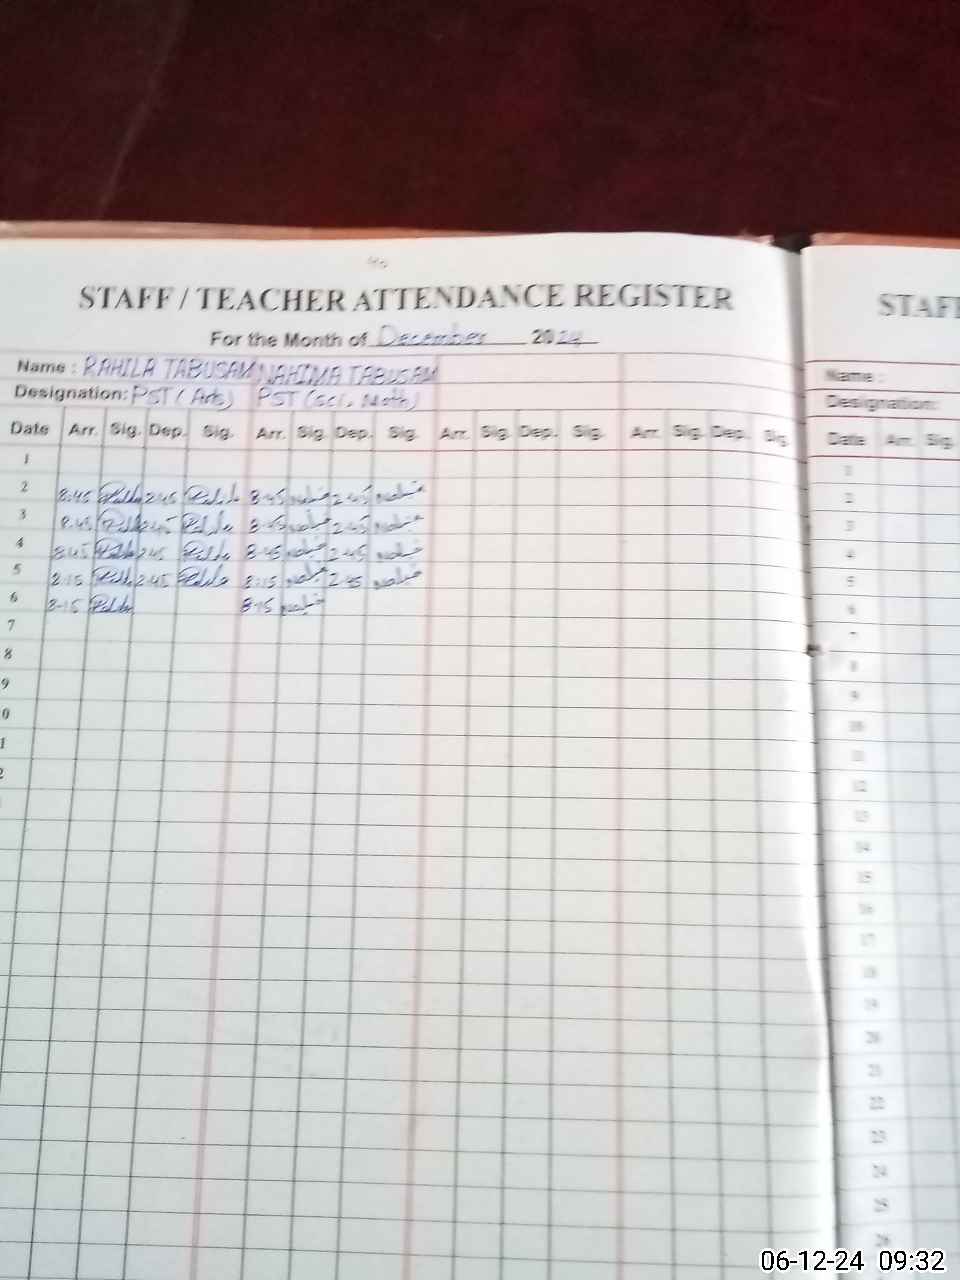 STAFF / TEACHER ATTENDANCE REGISTER
For the Month of December 2024
Name : RAHILA TABUSAM NAHIMA TABUSAM
Designation: PST (Arts) PST (sci, Math)
Date Arr. Sig. Dep. Sig. Arr. Sig. Dep. Sig. Arr. Sig. Dep. Sig. Arr. Sig. Dep. Sig.
1
2 8:45 2:45 8:45 2:45
3 8:45 2:45 8:45 2:45
4 8:45 2:45 8:45 2:45
5 8:15 2:45 8:15 2:45
6 8:15 8:15
7
8
9
0
1
2
STAFF
Name :
Designation:
Date Arr. Sig.
1
2
3
4
5
6
7
8
9
10
11
12
13
14
15
16
17
18
19
20
21
22
23
24
25
26
06-12-24 09:32